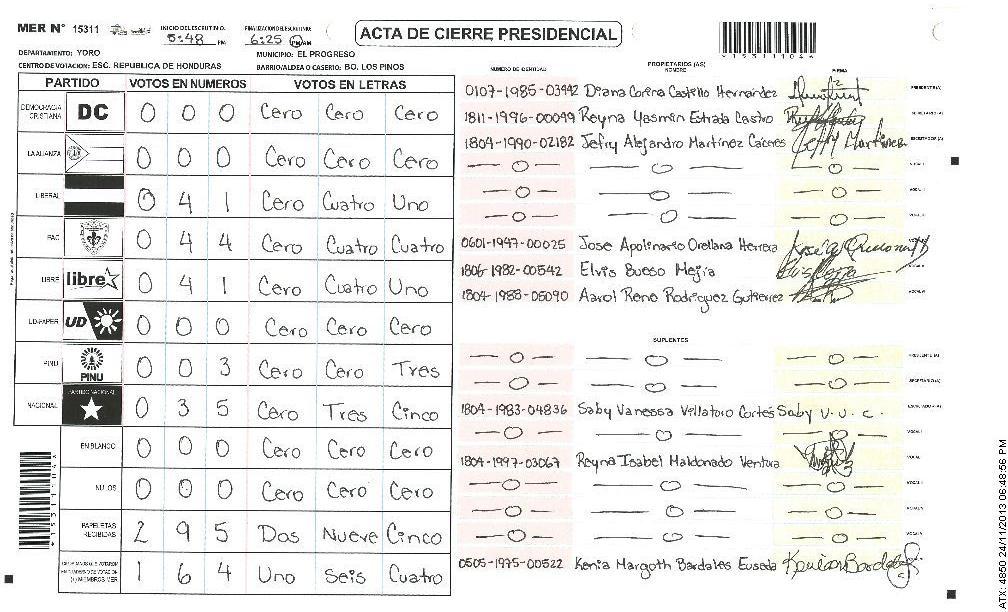 MER N° 15311
INICIO DEL ESCRUTINIO: 5:48 PM
FINALIZACION ESCRUTINIO: 6:25 PM AM
ACTA DE CIERRE PRESIDENCIAL
*15311104*
DEPARTAMENTO: YORO MUNICIPIO: EL PROGRESO
CENTRO DE VOTACION: ESC. REPUBLICA DE HONDURAS BARRIO/ALDEA O CASERIO: BO. LOS PINOS
PARTIDO VOTOS EN NUMEROS VOTOS EN LETRAS
DEMOCRACIA CRISTIANA DC 0 0 0 Cero Cero Cero
LA ALIANZA 0 0 0 Cero Cero Cero
LIBERAL 0 4 1 Cero Cuatro Uno
PAC 0 4 4 Cero Cuatro Cuatro
LIBRE libre 0 4 1 Cero Cuatro Uno
UD-FAPER UD 0 0 0 Cero Cero Cero
PINU PINU 0 0 3 Cero Cero Tres
NACIONAL PARTIDO NACIONAL 0 3 5 Cero Tres Cinco
EN BLANCO 0 0 0 Cero Cero Cero
NULOS 0 0 0 Cero Cero Cero
PAPELETAS RECIBIDAS 2 9 5 Dos Nueve Cinco
(+) MIEMBROS MER 1 6 4 Uno Seis Cuatro
*15311104*
PROPIETARIOS (AS)
NUMERO DE IDENTIDAD NOMBRE FIRMA
0107-1985-03442 Diana Corina Castillo Hernandez PRESIDENTE (A)
1811-1996-00099 Reyna Yasmin Estrada Castro SECRETARIO (A)
1804-1990-02182 Jefry Alejandro Martínez Cáceres Jeffry Martinez ESCRUTADOR (A)
— 0 — — 0 — — 0 — VOCAL I
— 0 — — 0 — — 0 — VOCAL II
— 0 — — 0 — — 0 — VOCAL III
0601-1947-00025 Jose Apolinario Orellana Herrera
1806-1982-00542 Elvis Bueso Mejia
1804-1988-05090 Aarol Rene Rodriguez Gutierrez
SUPLENTES
— 0 — — 0 — — 0 — PRESIDENTE (A)
— 0 — — 0 — — 0 — SECRETARIO (A)
1804-1983-04836 Saby Vanessa Villatoro Cortés Saby V. V. C. ESCRUTADOR (A)
— 0 — — 0 — — 0 —
1804-1997-03067 Reyna Isabel Maldonado Ventura
— 0 — — 0 — — 0 —
— 0 — — 0 — — 0 —
— 0 — — 0 — — 0 —
0505-1975-00522 Kenia Margoth Bardales Euseda
ATX: 4850 24/11/2013 06:48:56 PM